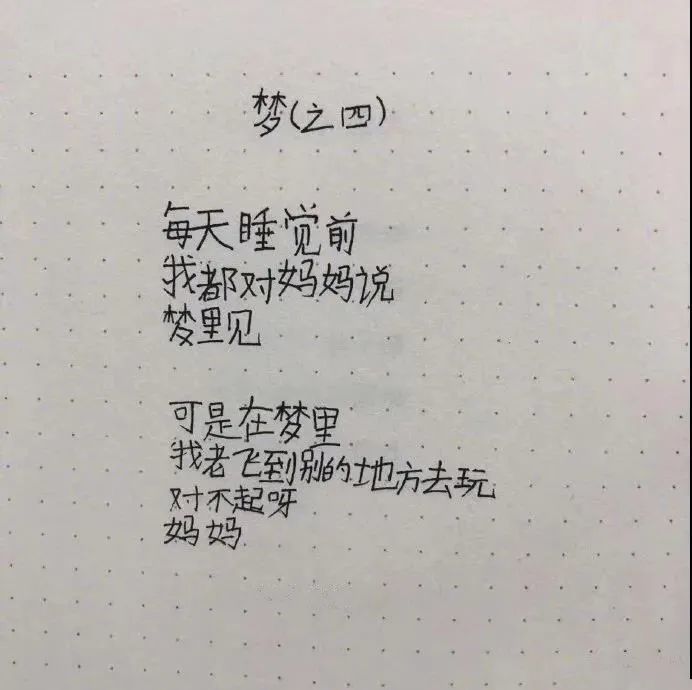 梦(之四)
每天睡觉前
我都对妈妈说
梦里见
可是在梦里
我老飞到别的地方去玩
对不起呀
妈妈